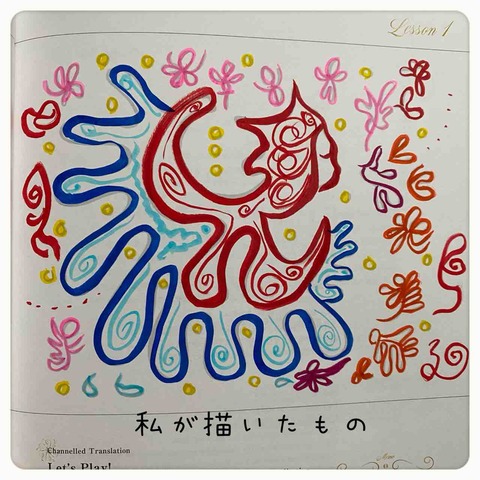 Lesson 1
私が描いたもの
Channelled Translation
Let's Play!